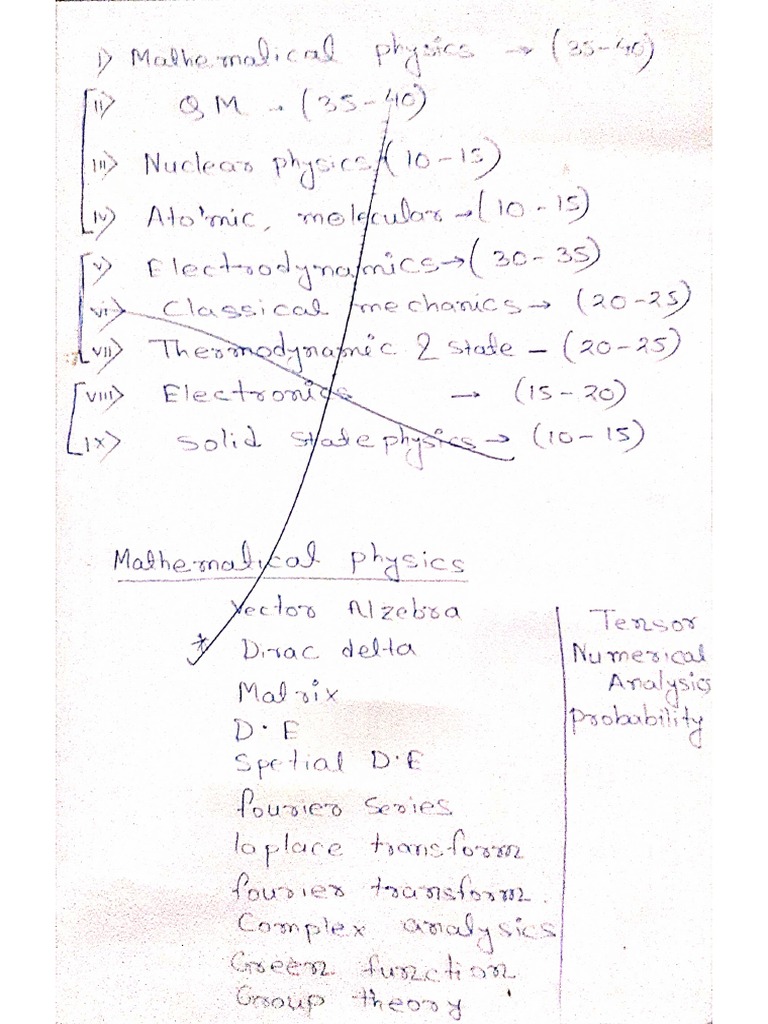 i) Mathematical physics → (35-40)
ii) QM → (35-40)
iii) Nuclear physics → (10-15)
iv) Atomic, molecular → (10-15)
v) Electrodynamics → (30-35)
vi) Classical mechanics → (20-25)
vii) Thermodynamic & state - (20-25)
viii) Electronics → (15-20)
ix) Solid state physics → (10-15)
Mathematical physics
Vector Alzebra
* Dirac delta
Matrix
D.E
Spetial D.E
fourier series
laplace transform
fourier transform.
Complex analysics
Green function
Group theory
Tensor
Numerical
Analysics
probability